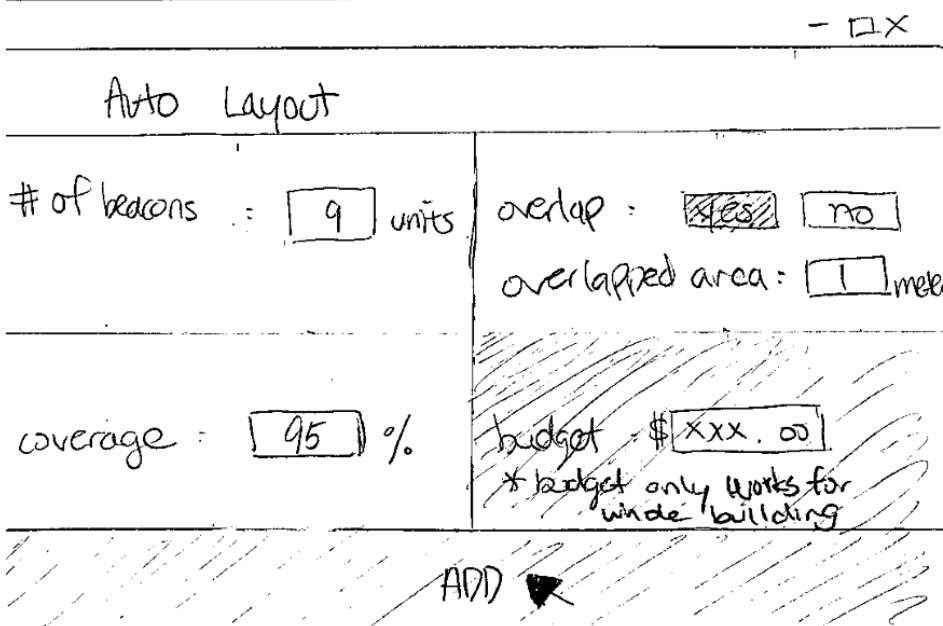 Auto Layout
# of beacons : 9 units
overlap : yes no
overlapped area : 1 mete
coverage : 95 %
budget $ XXX.00
* budget only works for
whole building
ADD